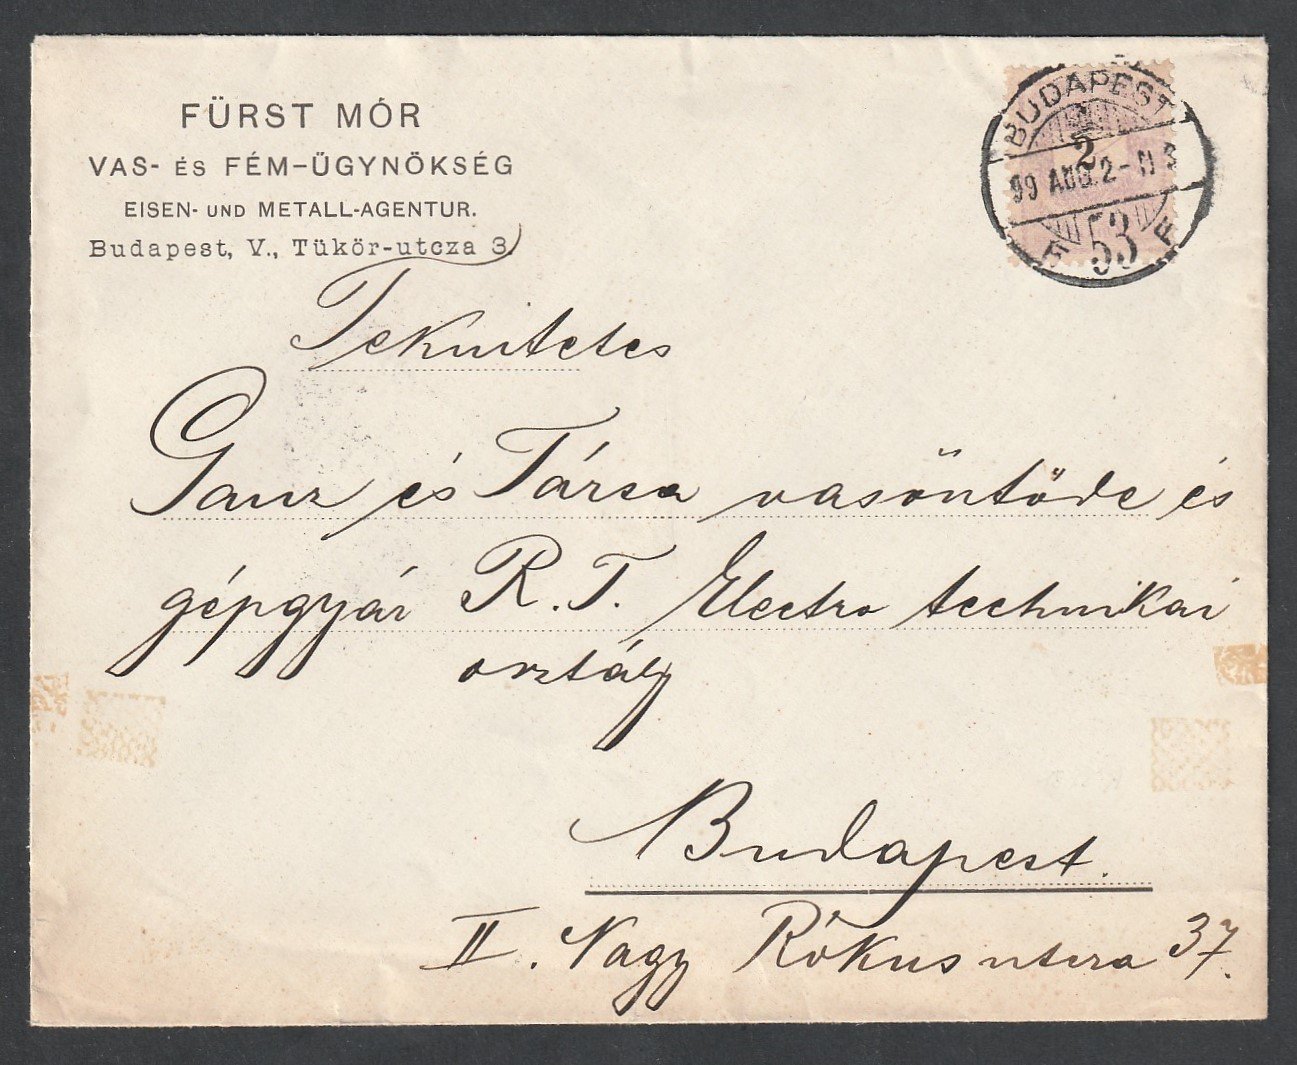 FÜRST MÓR
VAS- ÉS FÉM-ÜGYNÖKSÉG
EISEN- UND METALL-AGENTUR.
Budapest, V., Tükör-utcza 3.
BUDAPEST
2
99 AUG. 2 - N 3
F 53 F
Teknitetes
Ganz és Társa vasöntöde és
gépgyár R. T. Electro technikai
osztály
Budapest.
II. Nagy Rókus utcza 37.